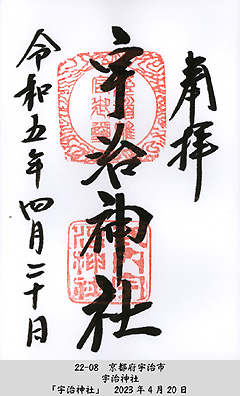 奉拝
宇治神社
令和五年四月二十日
22-08 京都府宇治市
宇治神社
「宇治神社」 2023年4月20日